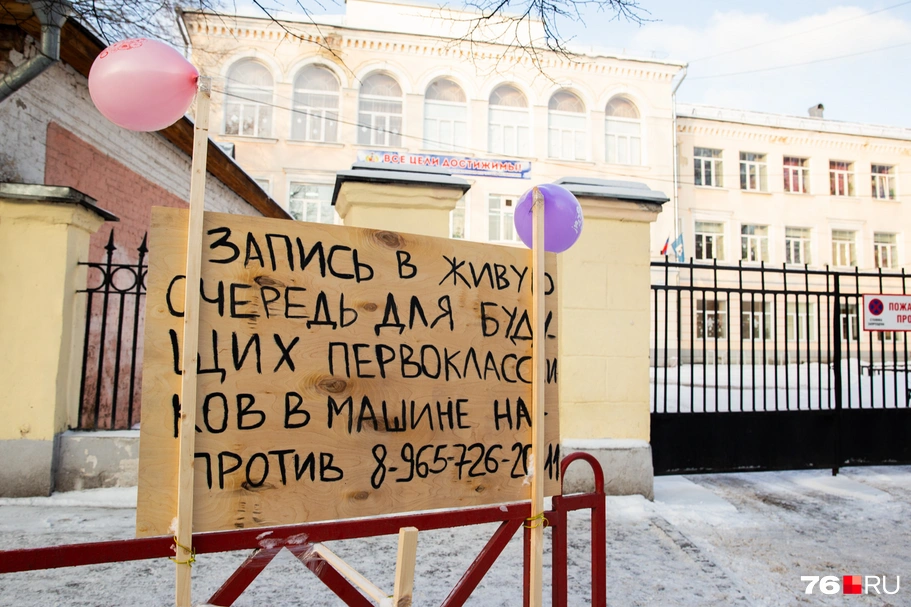 ВСЕ ЦЕЛИ ДОСТИЖИМЫ!
ЗАПИСЬ В ЖИВУЮ
ОЧЕРЕДЬ ДЛЯ БУДУ-
ЩИХ ПЕРВОКЛАССНИ
КОВ В МАШИНЕ НА-
ПРОТИВ 8-965-726-20-11
76.RU